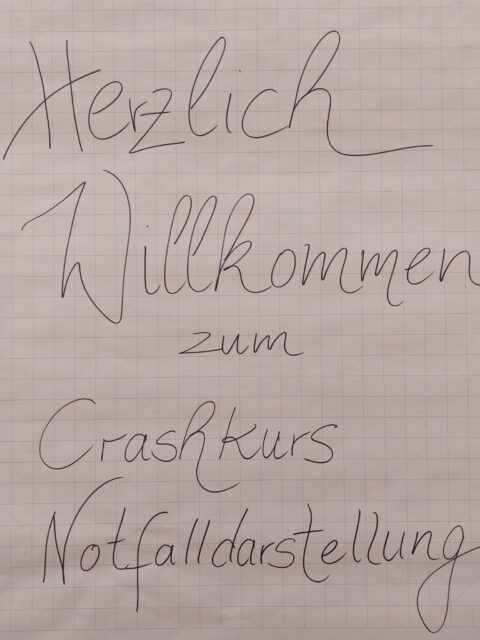 Herzlich
Willkommen
zum
Crashkurs
Notfalldarstellung